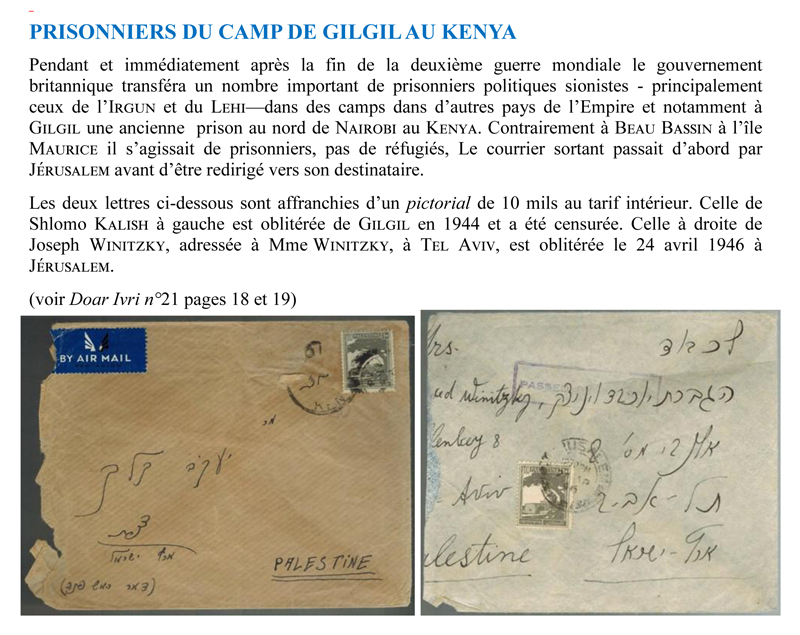 PRISONNIERS DU CAMP DE GILGIL AU KENYA
Pendant et immédiatement après la fin de la deuxième guerre mondiale le gouvernement
britannique transféra un nombre important de prisonniers politiques sionistes - principalement
ceux de l'IRGUN et du LEHI—dans des camps dans d'autres pays de l'Empire et notamment à
GILGIL une ancienne prison au nord de NAIROBI au KENYA. Contrairement à BEAU BASSIN à l'île
MAURICE il s'agissait de prisonniers, pas de réfugiés, Le courrier sortant passait d'abord par
JÉRUSALEM avant d'être redirigé vers son destinataire.
Les deux lettres ci-dessous sont affranchies d'un pictorial de 10 mils au tarif intérieur. Celle de
Shlomo KALISH à gauche est oblitérée de GILGIL en 1944 et a été censurée. Celle à droite de
Joseph WINITZKY, adressée à Mme WINITZKY, à TEL AVIV, est oblitérée le 24 avril 1946 à
JÉRUSALEM.
(voir Doar Ivri n°21 pages 18 et 19)
BY AIR MAIL
יעקב קליש
צפת
ארץ ישראל
PALESTINE
rs.
לכבוד
PASSE
Winitzky,
הגברת
lenby 8
8
Aviv
תל-אביב
alestine
ארץ-ישראל